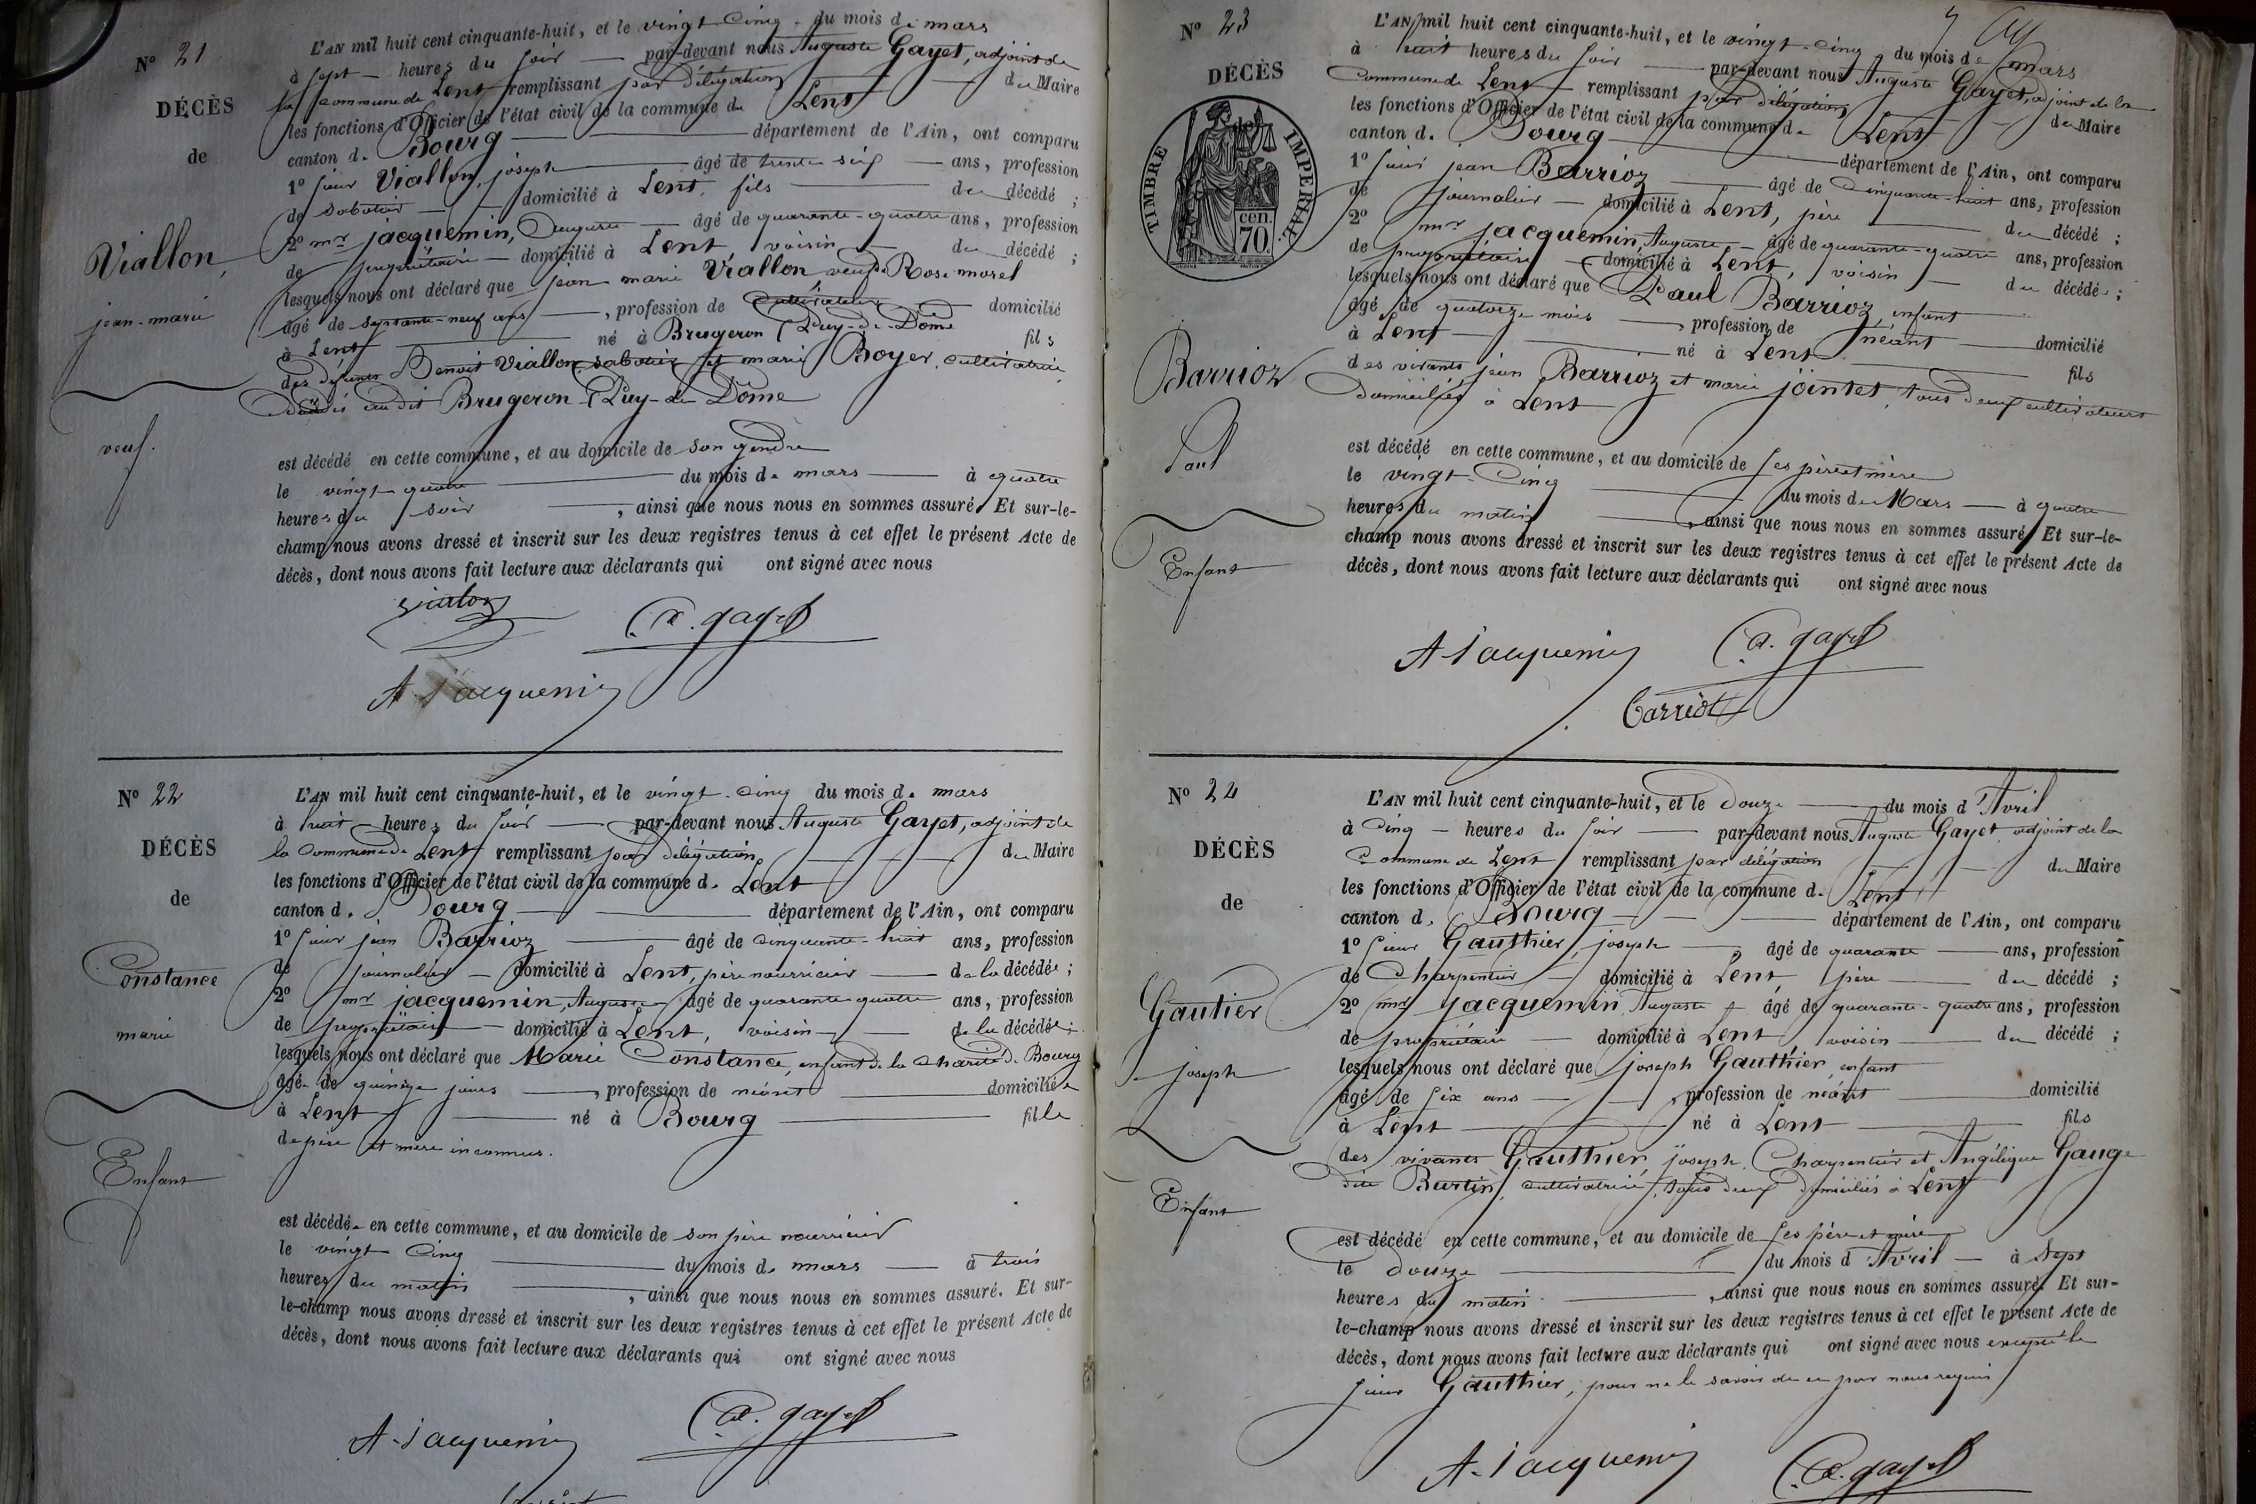 N° 21
DÉCÈS
de
Viallon,
jean-marie
veuf.
L'AN mil huit cent cinquante-huit, et le vingt-cinq du mois de mars
à sept heures du soir par-devant nous Auguste Gayet, adjoint de
la commune de Lent remplissant par délégation du Maire
les fonctions d'Officier de l'état civil de la commune de Lent
canton de Bourg département de l'Ain, ont comparu
1° sieur Viallon, joseph âgé de trente six ans, profession
de sabotier domicilié à Lent, fils du décédé ;
2° mr jacquemin, Auguste âgé de quarante-quatre ans, profession
de propriétaire domicilié à Lent, voisin du décédé ;
lesquels nous ont déclaré que jean marie Viallon veuf de Rose morel
âgé de septante-neuf ans, profession de cultivateur domicilié
à Lent né à Brugeron (Puy-de-Dôme fils
des défunts Benoit Viallon, sabotier et marie Boyer, cultivatrice,
décédés audit Brugeron (Puy-de-Dôme
est décédé en cette commune, et au domicile de son gendre
le vingt quatre du mois de mars à quatre
heures du soir, ainsi que nous nous en sommes assuré. Et sur-le-
champ nous avons dressé et inscrit sur les deux registres tenus à cet effet le présent Acte de
décès, dont nous avons fait lecture aux déclarants qui ont signé avec nous
A. gayet
A. Jacquemin
N° 22
DÉCÈS
de
Constance
marie
Enfant
L'AN mil huit cent cinquante-huit, et le vingt-cinq du mois de mars
à huit heures du soir par-devant nous Auguste Gayet, adjoint de
la Commune de Lent remplissant par délégation du Maire
les fonctions d'Officier de l'état civil de la commune de Lent
canton de Bourg département de l'Ain, ont comparu
1° sieur jean Barrioz âgé de cinquante-huit ans, profession
de journalier domicilié à Lent, père nourricier de la décédée ;
2° mr jacquemin, Auguste âgé de quarante quatre ans, profession
de propriétaire domicilié à Lent, voisin de la décédée ;
lesquels nous ont déclaré que Marie Constance, enfant de la charité de Bourg
âgée de quinze jours, profession de néant domiciliée
à Lent né à Bourg fille
de père et mère inconnus.
est décédée en cette commune, et au domicile de son père nourricier
le vingt cinq du mois de mars à trois
heures du matin, ainsi que nous nous en sommes assuré. Et sur-
le-champ nous avons dressé et inscrit sur les deux registres tenus à cet effet le présent Acte de
décès, dont nous avons fait lecture aux déclarants qui ont signé avec nous
A. Jacquemin A. gayet
N° 23
DÉCÈS
de
TIMBRE IMPERIAL.
cen.
70
Barrioz
Paul
Enfant
L'AN mil huit cent cinquante-huit, et le vingt-cinq du mois de mars
à huit heures du soir par-devant nous Auguste Gayet, adjoint de la
Commune de Lent remplissant par délégation du Maire
les fonctions d'Officier de l'état civil de la commune de Lent
canton de Bourg département de l'Ain, ont comparu
1° sieur jean Barrioz âgé de cinquante-huit ans, profession
de journalier domicilié à Lent, père du décédé ;
2° mr jacquemin, Auguste âgé de quarante-quatre ans, profession
de propriétaire domicilié à Lent, voisin du décédé ;
lesquels nous ont déclaré que Paul Barrioz, enfant
âgé de quatorze mois, profession de néant domicilié
à Lent né à Lent fils
des vivants jean Barrioz et marie jointet, tous deux cultivateurs
Domiciliés à Lent
est décédé en cette commune, et au domicile de ses père et mère
le vingt-cinq du mois de Mars à quatre
heures du matin, ainsi que nous nous en sommes assuré. Et sur-le-
champ nous avons dressé et inscrit sur les deux registres tenus à cet effet le présent Acte de
décès, dont nous avons fait lecture aux déclarants qui ont signé avec nous
A. Jacquemin A. gayet
N° 24
DÉCÈS
de
Gautier
joseph
Enfant
L'AN mil huit cent cinquante-huit, et le douze du mois d'Avril
à cinq heures du soir par-devant nous Auguste Gayet adjoint de la
Commune de Lent remplissant par délégation du Maire
les fonctions d'Officier de l'état civil de la commune de Lent
canton de Bourg département de l'Ain, ont comparu
1° sieur Gauthier, joseph âgé de quarante ans, profession
de Charpentier domicilié à Lent, père du décédé ;
2° mr jacquemin, Auguste âgé de quarante-quatre ans, profession
de propriétaire domicilié à Lent voisin du décédé ;
lesquels nous ont déclaré que joseph Gauthier, enfant
âgé de six ans, profession de néant domicilié
à Lent né à Lent fils
des vivants Gauthier, joseph, Charpentier et Angélique Gauge
dite Burtin, cultivatrice, tous deux domiciliés à Lent
est décédé en cette commune, et au domicile de ses père et mère
le douze du mois d'Avril à Sept
heures du matin, ainsi que nous nous en sommes assuré. Et sur-
le-champ nous avons dressé et inscrit sur les deux registres tenus à cet effet le présent Acte de
décès, dont nous avons fait lecture aux déclarants qui ont signé avec nous excepté le
sieur Gauthier, pour ne le savoir de ce par nous requis
A. Jacquemin A. gayet